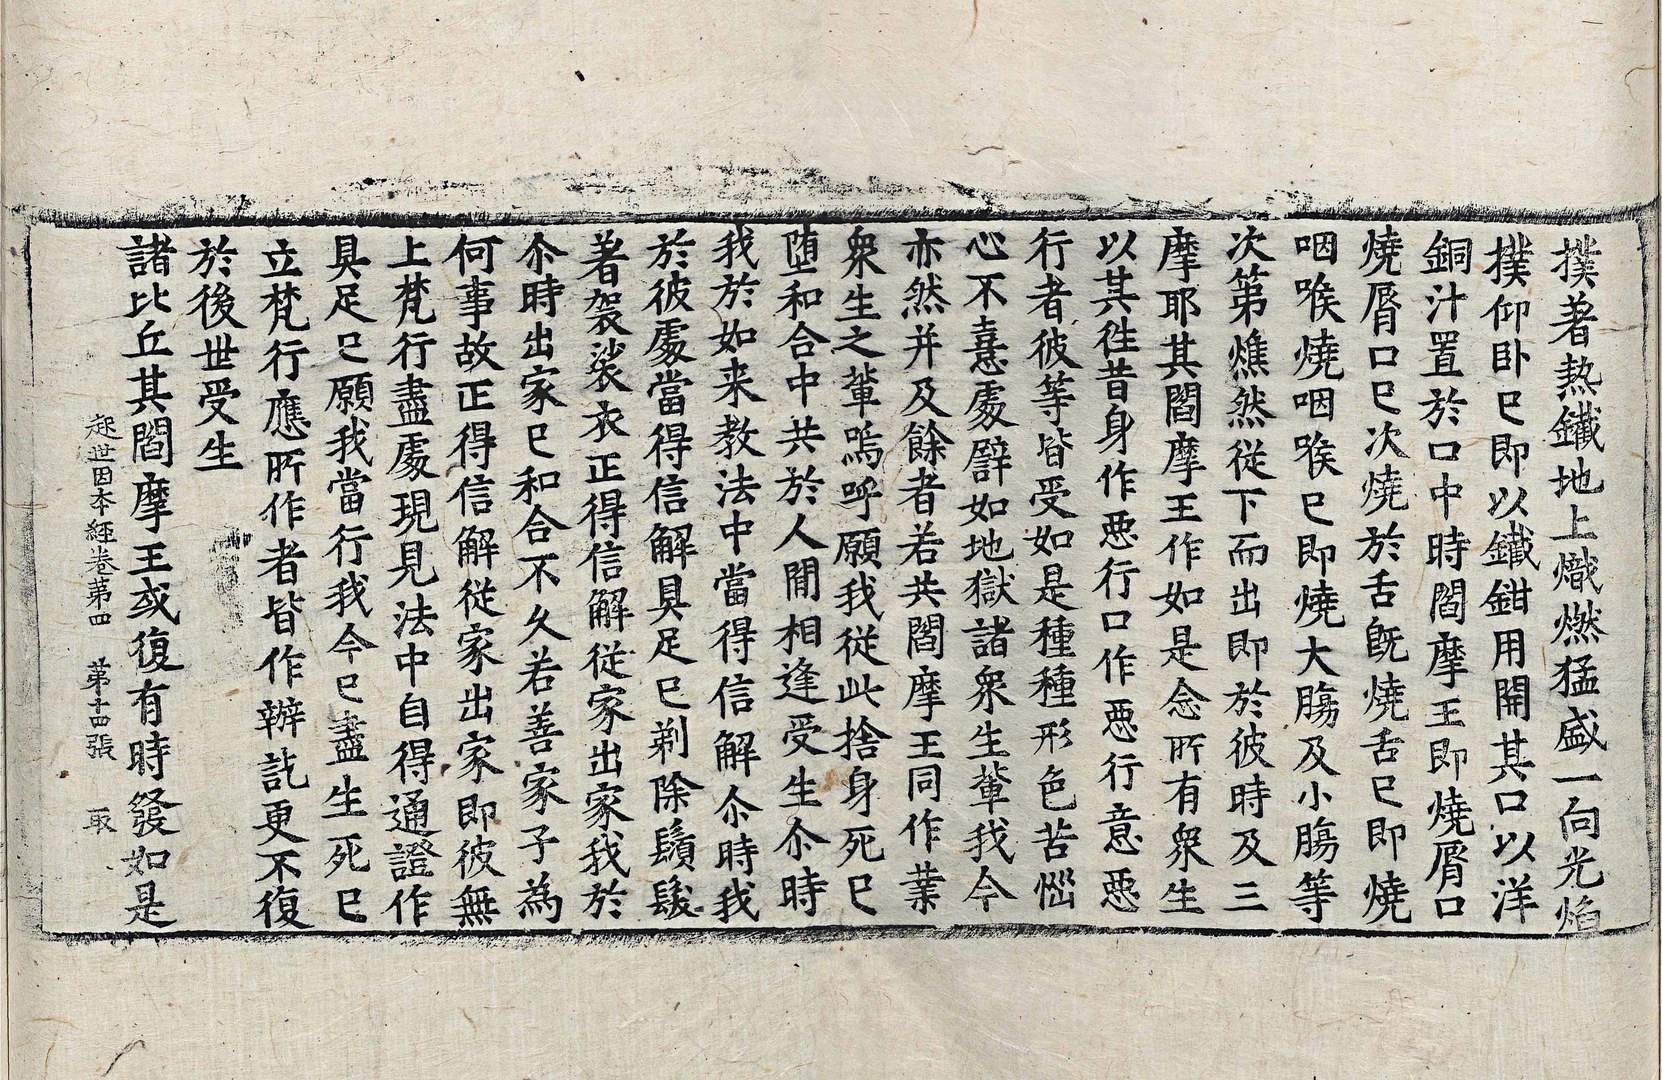 撲著热鐵地上熾燃猛盛一向光焰
撲仰卧已即以鐵鉗用開其口以洋
銅汁置於口中時閻摩王即燒脣口
燒脣口已次燒於舌旣燒舌已即燒
咽喉燒咽喉已即燒大膓及小膓等
次第燋然從下而出即於彼時及三
摩耶其閻摩王作如是念所有衆生
以其徃昔身作惡行口作惡行意惡
行者彼等皆受如是種種形色苦惱
心不憙處譬如地獄諸衆生輩我今
亦然并及餘者若共閻摩王同作業
衆生之輩嗚呼願我從此捨身死已
堕和合中共於人間相逢受生尒時
我於如来教法中當得信解尒時我
於彼處當得信解具足已剃除鬚髮
著袈裟衣正得信解從家出家我於
尒時出家已和合不久若善家子為
何事故正得信解從家出家即彼無
上梵行盡處現見法中自得通證作
具足已願我當行我今已盡生死已
立梵行應所作者皆作辦訖更不復
於後世受生
諸比丘其閻摩王或復有時發如是
起世因本經卷第四　第十四張　取